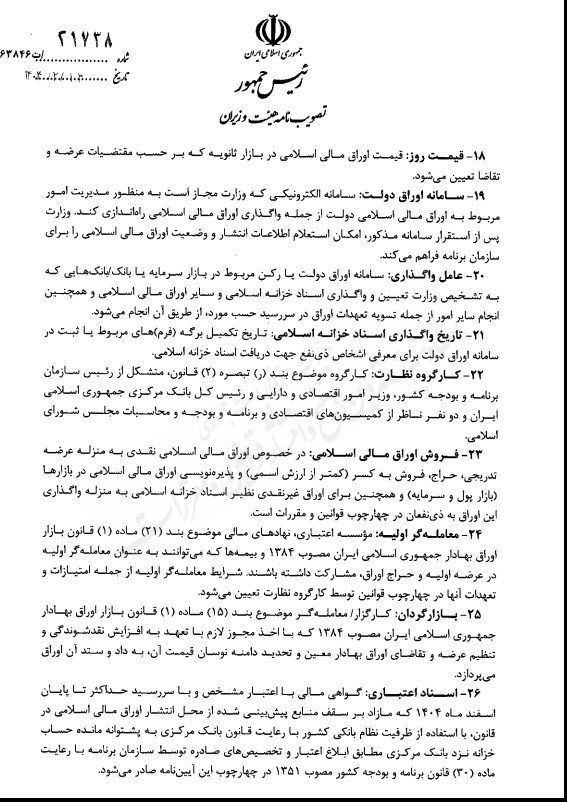 ۲۱۷۳۸
شماره .................../ت۶۳۸۴۶
جمهوری اسلامی ایران
رئیس جمهور
تصویب نامه هیئت وزیران
۱۸- قیمت روز: قیمت اوراق مالی اسلامی در بازار ثانویه که بر حسب مقتضیات عرضه و
تقاضا تعیین می‌شود.
۱۹- سامانه اوراق دولت: سامانه الکترونیکی که وزارت مجاز است به منظور مدیریت امور
مربوط به اوراق مالی اسلامی دولت از جمله واگذاری اوراق مالی اسلامی راه‌اندازی کند. وزارت
پس از استقرار سامانه مذکور، امکان استعلام اطلاعات انتشار و وضعیت اوراق مالی اسلامی را برای
سازمان برنامه فراهم می‌کند.
۲۰- عامل واگذاری: سامانه اوراق دولت یا رکن مربوط در بازار سرمایه یا بانک/بانک‌هایی که
به تشخیص وزارت تعیین و واگذاری اسناد خزانه اسلامی و سایر اوراق مالی اسلامی و همچنین
انجام سایر امور از جمله تسویه تعهدات اوراق در سررسید حسب مورد، از طریق آن انجام می‌شود.
۲۱- تاریخ واگذاری اسناد خزانه اسلامی: تاریخ تکمیل برگه (فرم)های مربوط یا ثبت در
سامانه اوراق دولت برای معرفی اشخاص ذی‌نفع جهت دریافت اسناد خزانه اسلامی.
۲۲- کارگروه نظارت: کارگروه موضوع بند (ر) تبصره (۲) قانون، متشکل از رئیس سازمان
برنامه و بودجه کشور، وزیر امور اقتصادی و دارایی و رئیس کل بانک مرکزی جمهوری اسلامی
ایران و دو نفر ناظر از کمیسیون‌های اقتصادی و برنامه و بودجه و محاسبات مجلس شورای
اسلامی.
۲۳- فروش اوراق مالی اسلامی: در خصوص اوراق مالی اسلامی نقدی به منزله عرضه
تدریجی، حراج، فروش به کسر (کمتر از ارزش اسمی) و پذیره‌نویسی اوراق مالی اسلامی در بازارها
(بازار پول و سرمایه) و همچنین برای اوراق غیرنقدی نظیر اسناد خزانه اسلامی به منزله واگذاری
این اوراق به ذی‌نفعان در چهارچوب قوانین و مقررات است.
۲۴- معامله‌گر اولیه: مؤسسه اعتباری، نهادهای مالی موضوع بند (۲۱) ماده (۱) قانون بازار
اوراق بهادار جمهوری اسلامی ایران مصوب ۱۳۸۴ و بیمه‌ها که می‌توانند به عنوان معامله‌گر اولیه
در عرضه اولیه و حراج اوراق، مشارکت داشته باشند. شرایط معامله‌گر اولیه از جمله امتیازات و
تعهدات آنها در چهارچوب قوانین توسط کارگروه نظارت تعیین می‌شود.
۲۵- بازارگردان: کارگزار/ معامله‌گر موضوع بند (۱۵) ماده (۱) قانون بازار اوراق بهادار
جمهوری اسلامی ایران مصوب ۱۳۸۴ که با اخذ مجوز لازم با تعهد به افزایش نقدشوندگی و
تنظیم عرضه و تقاضای اوراق بهادار معین و تحدید دامنه نوسان قیمت آن، به داد و ستد آن اوراق
می‌پردازد.
۲۶- اسناد اعتباری: گواهی مالی با اعتبار مشخص و با سررسید حداکثر تا پایان
اسفند ماه ۱۴۰۴ که مازاد بر سقف منابع پیش‌بینی شده از محل انتشار اوراق مالی اسلامی در
قانون، با استفاده از ظرفیت نظام بانکی کشور با رعایت قانون بانک مرکزی به پشتوانه مانده حساب
خزانه نزد بانک مرکزی مطابق ابلاغ اعتبار و تخصیص‌های صادره توسط سازمان برنامه با رعایت
ماده (۳۰) قانون برنامه و بودجه کشور مصوب ۱۳۵۱ در چهارچوب این آیین‌نامه صادر می‌شود.